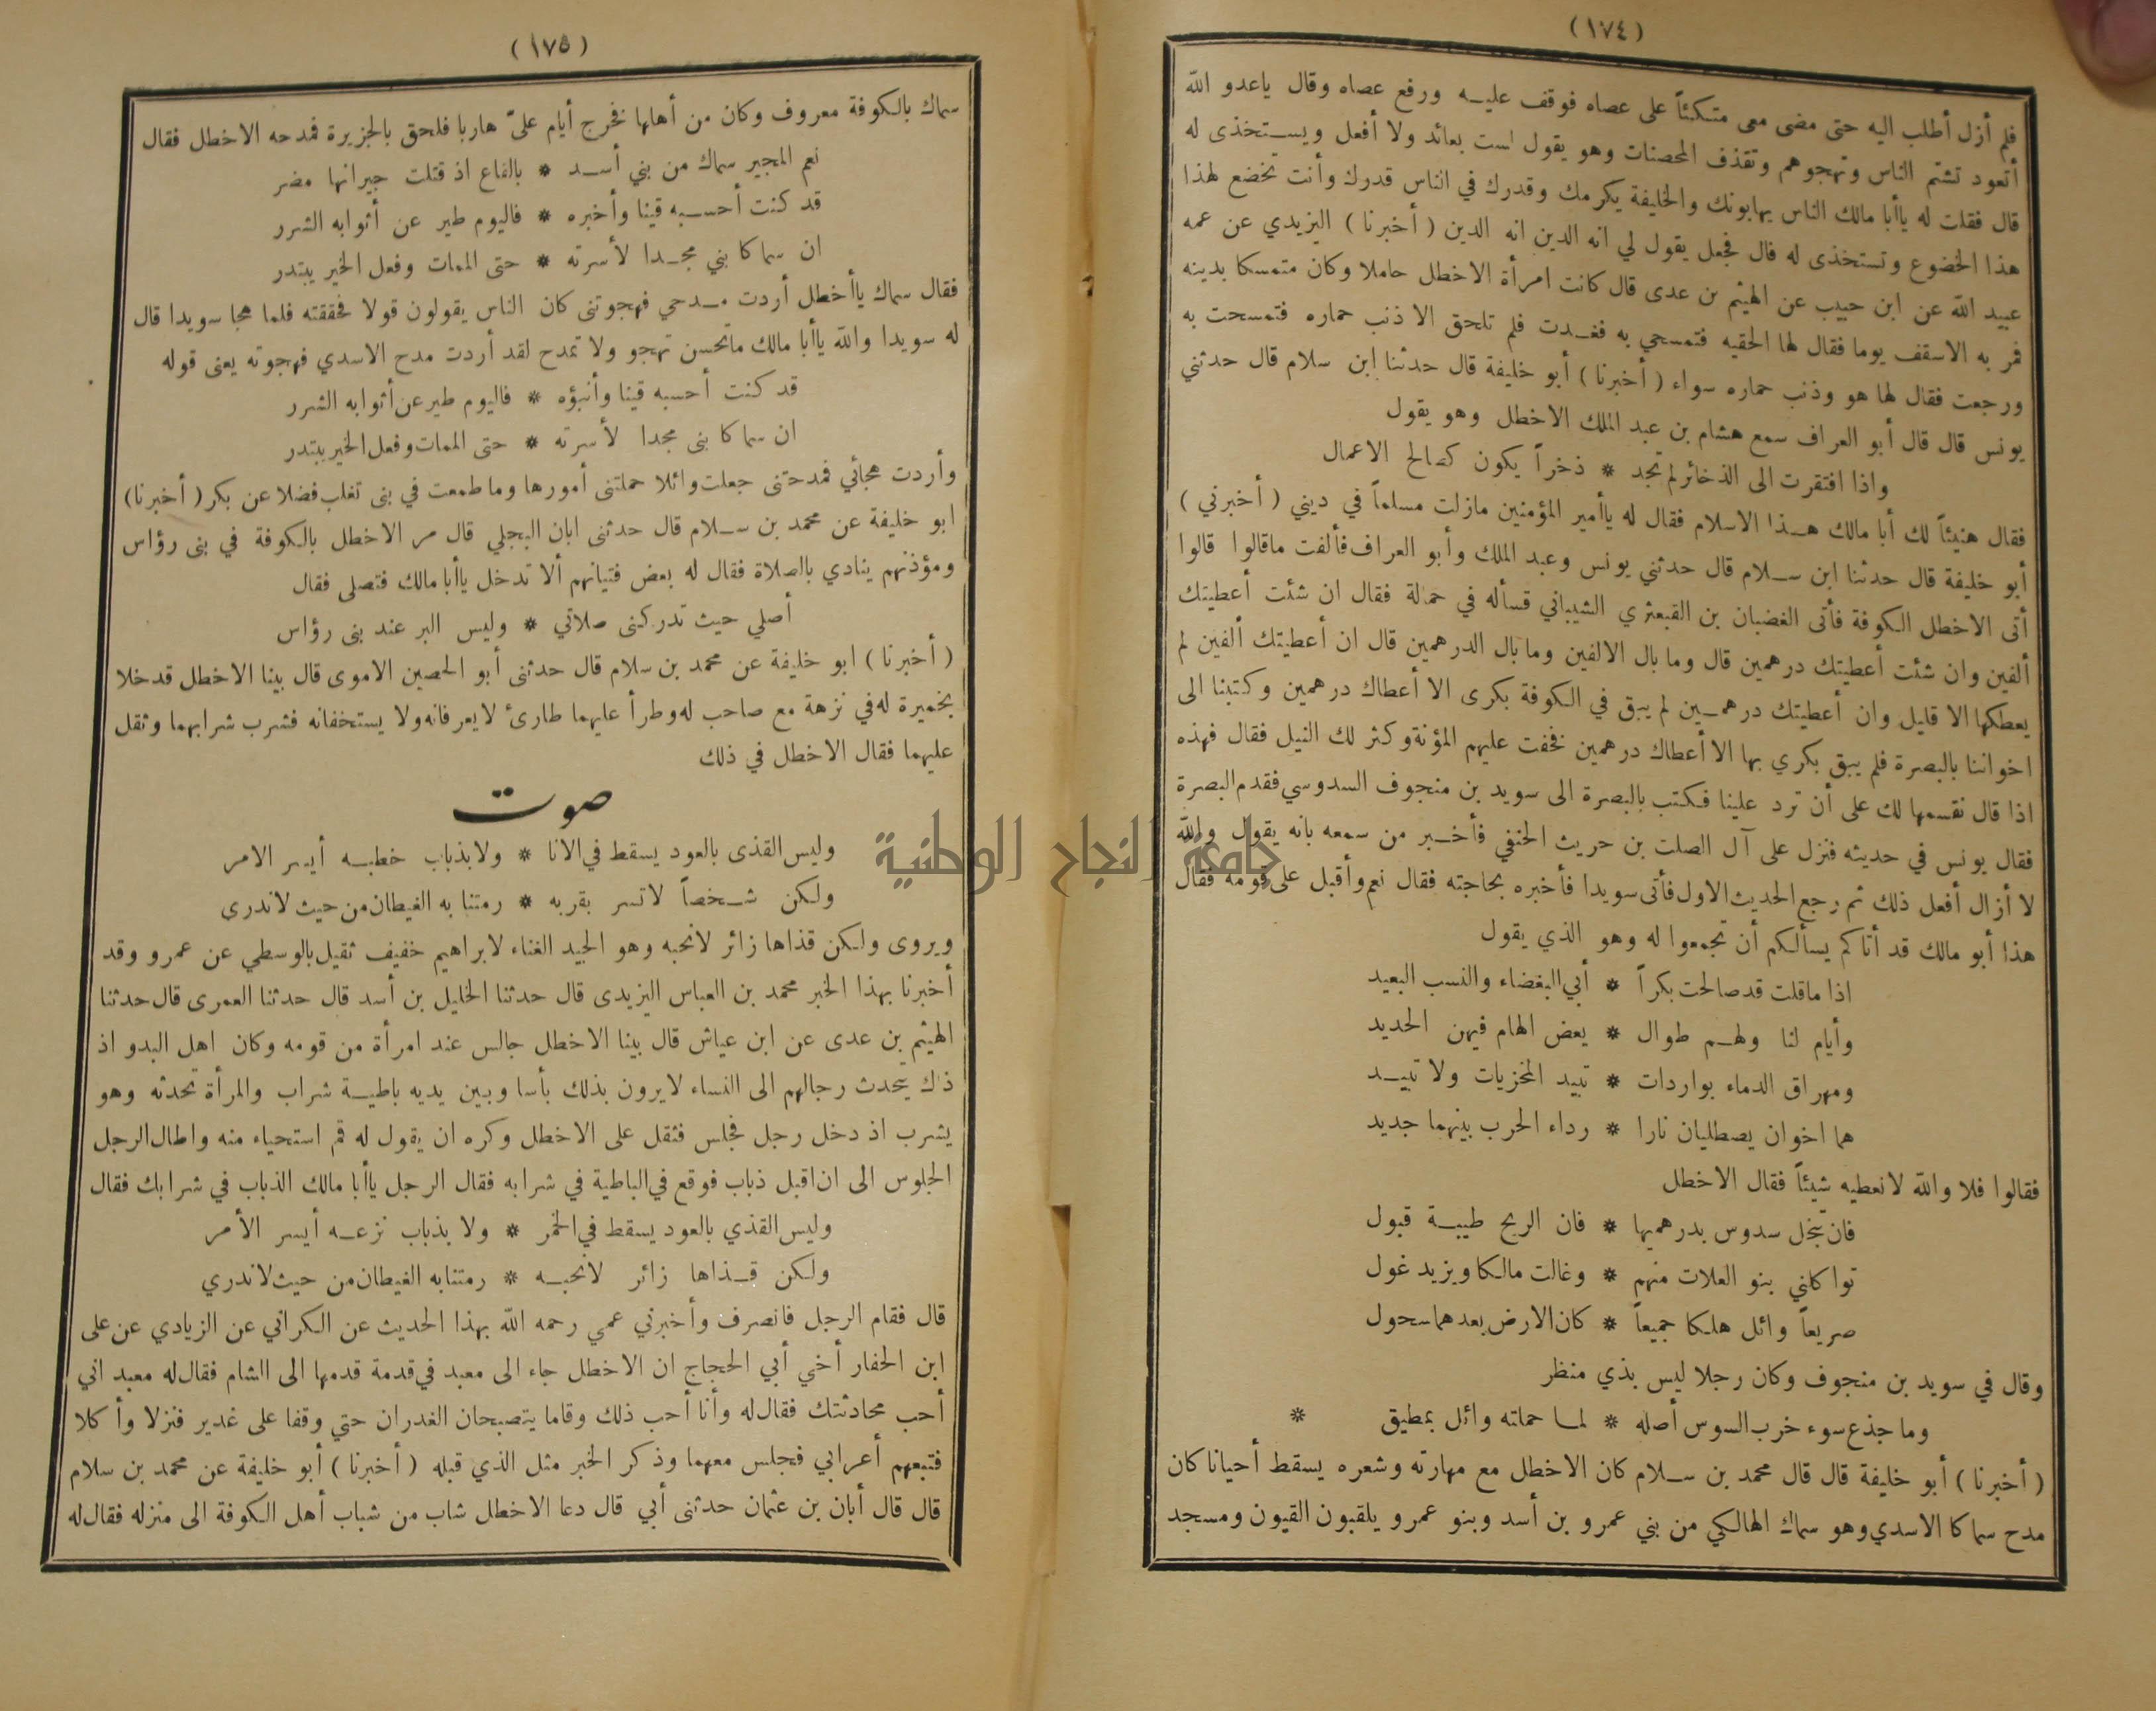 (١٧٤)
فلم أزل أطلب اليه حتى مضى معى متكئاً على عصاه فوقف عليه ورفع عصاه وقال ياعدو الله
أتعود تشتم الناس وتهجوهم وتقذف المحصنات وهو يقول لست بعائد ولا أفعل ويستخذى له
قال فقلت له ياأبا مالك الناس يهابونك والخليفة يكرمك وقدرك في الناس قدرك وأنت تخضع لهذا
هذا الخضوع وتستخذى له قال فجعل يقول لي انه الدين انه الدين ( أخبرنا ) اليزيدي عن عمه
عبيد الله عن ابن حبيب عن الهيثم بن عدى قال كانت امرأة الاخطل حاملا وكان متمسكا بدينه
فمر به الاسقف يوما فقال لها الحقيه فتمسحي به فغدت فلم تلحق الا ذنب حماره فتمسحت به
ورجعت فقال لها هو وذنب حماره سواء ( أخبرنا ) أبو خليفة قال حدثنا ابن سلام قال حدثني
يونس قال قال أبو العراف سمع هشام بن عبد الملك الاخطل وهو يقول
واذا افتقرت الى الذخائر لم تجد * ذخراً يكون كصالح الاعمال
فقال هنيئاً لك أبا مالك هذا الاسلام فقال له ياأمير المؤمنين مازلت مسلماً في ديني ( أخبرني )
أبو خليفة قال حدثنا ابن سلام قال حدثني يونس وعبد الملك وأبو العراف فألفت ماقالوا قالوا
أتى الاخطل الكوفة فأتى الغضبان بن القبعثري الشيباني فسأله في حمالة فقال ان شئت أعطيتك
ألفين وان شئت أعطيتك درهمين قال وما بال الالفين وما بال الدرهمين قال ان أعطيتك ألفين لم
يعطكها الا قليل وان أعطيتك درهمين لم يبق في الكوفة بكرى الا أعطاك درهمين وكتبنا الى
اخواننا بالبصرة فلم يبق بكري بها الا أعطاك درهمين فخفت عليهم المؤنة وكثر لك النيل فقال فهذه
اذا قال نقسمها لك على أن ترد علينا فكتب بالبصرة الى سويد بن منجوف السدوسي فقدم البصرة
فقال يونس في حديثه فنزل على آل الصلت بن حريث الحنفي فأخبر من سمعه بانه يقول والله
لا أزال أفعل ذلك ثم رجع الحديث الاول فأتى سويدا فأخبره بحاجته فقال نعم وأقبل على قومه فقال
هذا أبو مالك قد أتاكم يسألكم أن تجمعوا له وهو الذي يقول
اذا ماقلت قد صالحت بكراً * أبي البغضاء والنسب البعيد
وأيام لنا ولهم طوال * يعض الهام فيهن الحديد
ومهراق الدماء بواردات * تبيد المخزيات ولا تبيد
هما اخوان يصطليان نارا * رداء الحرب بينهما جديد
فقالوا فلا والله لانعطيه شيئاً فقال الاخطل
فان تبخل سدوس بدرهميها * فان الريح طيبة قبول
تواكاني بنو العلات منهم * وغالت مالكا ويزيد غول
صريعاً وائل هلكا جميعاً * كان الارض بعدهما سحول
وقال في سويد بن منجوف وكان رجلا ليس بذي منظر
وما جذع سوء خرب السوس أصله * لما حملته وائل بمطيق *
( أخبرنا ) أبو خليفة قال قال محمد بن سلام كان الاخطل مع مهارته وشعره يسقط أحيانا كان
مدح سماكا الاسدي وهو سماك الهالكي من بني عمرو بن أسد وبنو عمرو يلقبون القيون ومسجد
(١٧٥)
سماك بالكوفة معروف وكان من أهلها فخرج أيام علىّ هاربا فلحق بالجزيرة فمدحه الاخطل فقال
نعم المجير سماك من بني أسد * بالقاع اذ قتلت جيرانها مضر
قد كنت أحسبه قينا وأخبره * فاليوم طير عن أثوابه الشرر
ان سماكا بني مجدا لأسرته * حتى الممات وفعل الخير يبتدر
فقال سماك ياأخطل أردت مدحي فهجوتنى كان الناس يقولون قولا فحققته فلما هجا سويدا قال
له سويدا والله ياأبا مالك ماتحسن تهجو ولا تمدح لقد أردت مدح الاسدي فهجوته يعنى قوله
قد كنت أحسبه قينا وأنبؤه * فاليوم طير عن أثوابه الشرر
ان سماكا بنى مجدا لأسرته * حتى الممات وفعل الخير يبتدر
وأردت هجائي فمدحتنى جعلت وائلا حملتنى أمورها وما طمعت في بنى تغلب فضلا عن بكر ( أخبرنا )
ابو خليفة عن محمد بن سلام قال حدثنى ابان البجلي قال مر الاخطل بالكوفة في بنى رؤاس
ومؤذنهم ينادي بالصلاة فقال له بعض فتيانهم ألا تدخل ياأبا مالك فتصلى فقال
أصلي حيث تدركنى صلاتي * وليس البر عند بنى رؤاس
( أخبرنا ) ابو خليفة عن محمد بن سلام قال حدثنى أبو الحصين الاموى قال بينا الاخطل قد خلا
بخميرة له في نزهة مع صاحب له وطرأ عليهما طارئ لايعرفانه ولا يستخفانه فشرب شرابهما وثقل
عليهما فقال الاخطل في ذلك
صوت
وليس القذى بالعود يسقط في الانا * ولا بذباب خطبه أيسر الامر
ولكن شخصاً لاتسر بقربه * رمتنا به الغيطان من حيث لاندرى
ويروى ولكن قذاها زائر لانحبه وهو الجيد الغناء لابراهيم خفيف ثقيل بالوسطي عن عمرو وقد
أخبرنا بهذا الخبر محمد بن العباس اليزيدى قال حدثنا الخليل بن أسد قال حدثنا العمرى قال حدثنا
الهيثم بن عدى عن ابن عياش قال بينا الاخطل جالس عند امرأة من قومه وكان اهل البدو اذ
ذاك يتحدث رجالهم الى النساء لايرون بذلك بأسا وبين يديه باطية شراب والمرأة تحدثه وهو
يشرب اذ دخل رجل فجلس فثقل على الاخطل وكره ان يقول له قم استحياء منه واطال الرجل
الجلوس الى ان اقبل ذباب فوقع في الباطية في شرابه فقال الرجل ياأبا مالك الذباب في شرابك فقال
وليس القذي بالعود يسقط في الخمر * ولا بذباب نزعه أيسر الأمر
ولكن قذاها زائر لانحبه * رمتنا به الغيطان من حيث لاندري
قال فقام الرجل فانصرف وأخبرني عمي رحمه الله بهذا الحديث عن الكراني عن الزيادي عن على
ابن الحفار أخي أبي الحجاج ان الاخطل جاء الى معبد في قدمة قدمها الى الشام فقال له معبد اني
أحب محادثتك فقال له وأنا أحب ذلك وقاما يتصبحان الغدران حتي وقفا على غدير فنزلا وأكلا
فتبعهم أعرابي فجلس معهما وذكر الخبر مثل الذي قبله ( أخبرنا ) أبو خليفة عن محمد بن سلام
قال قال أبان بن عثمان حدثنى أبي قال دعا الاخطل شاب من شباب أهل الكوفة الى منزله فقال له
جامعة النجاح الوطنية